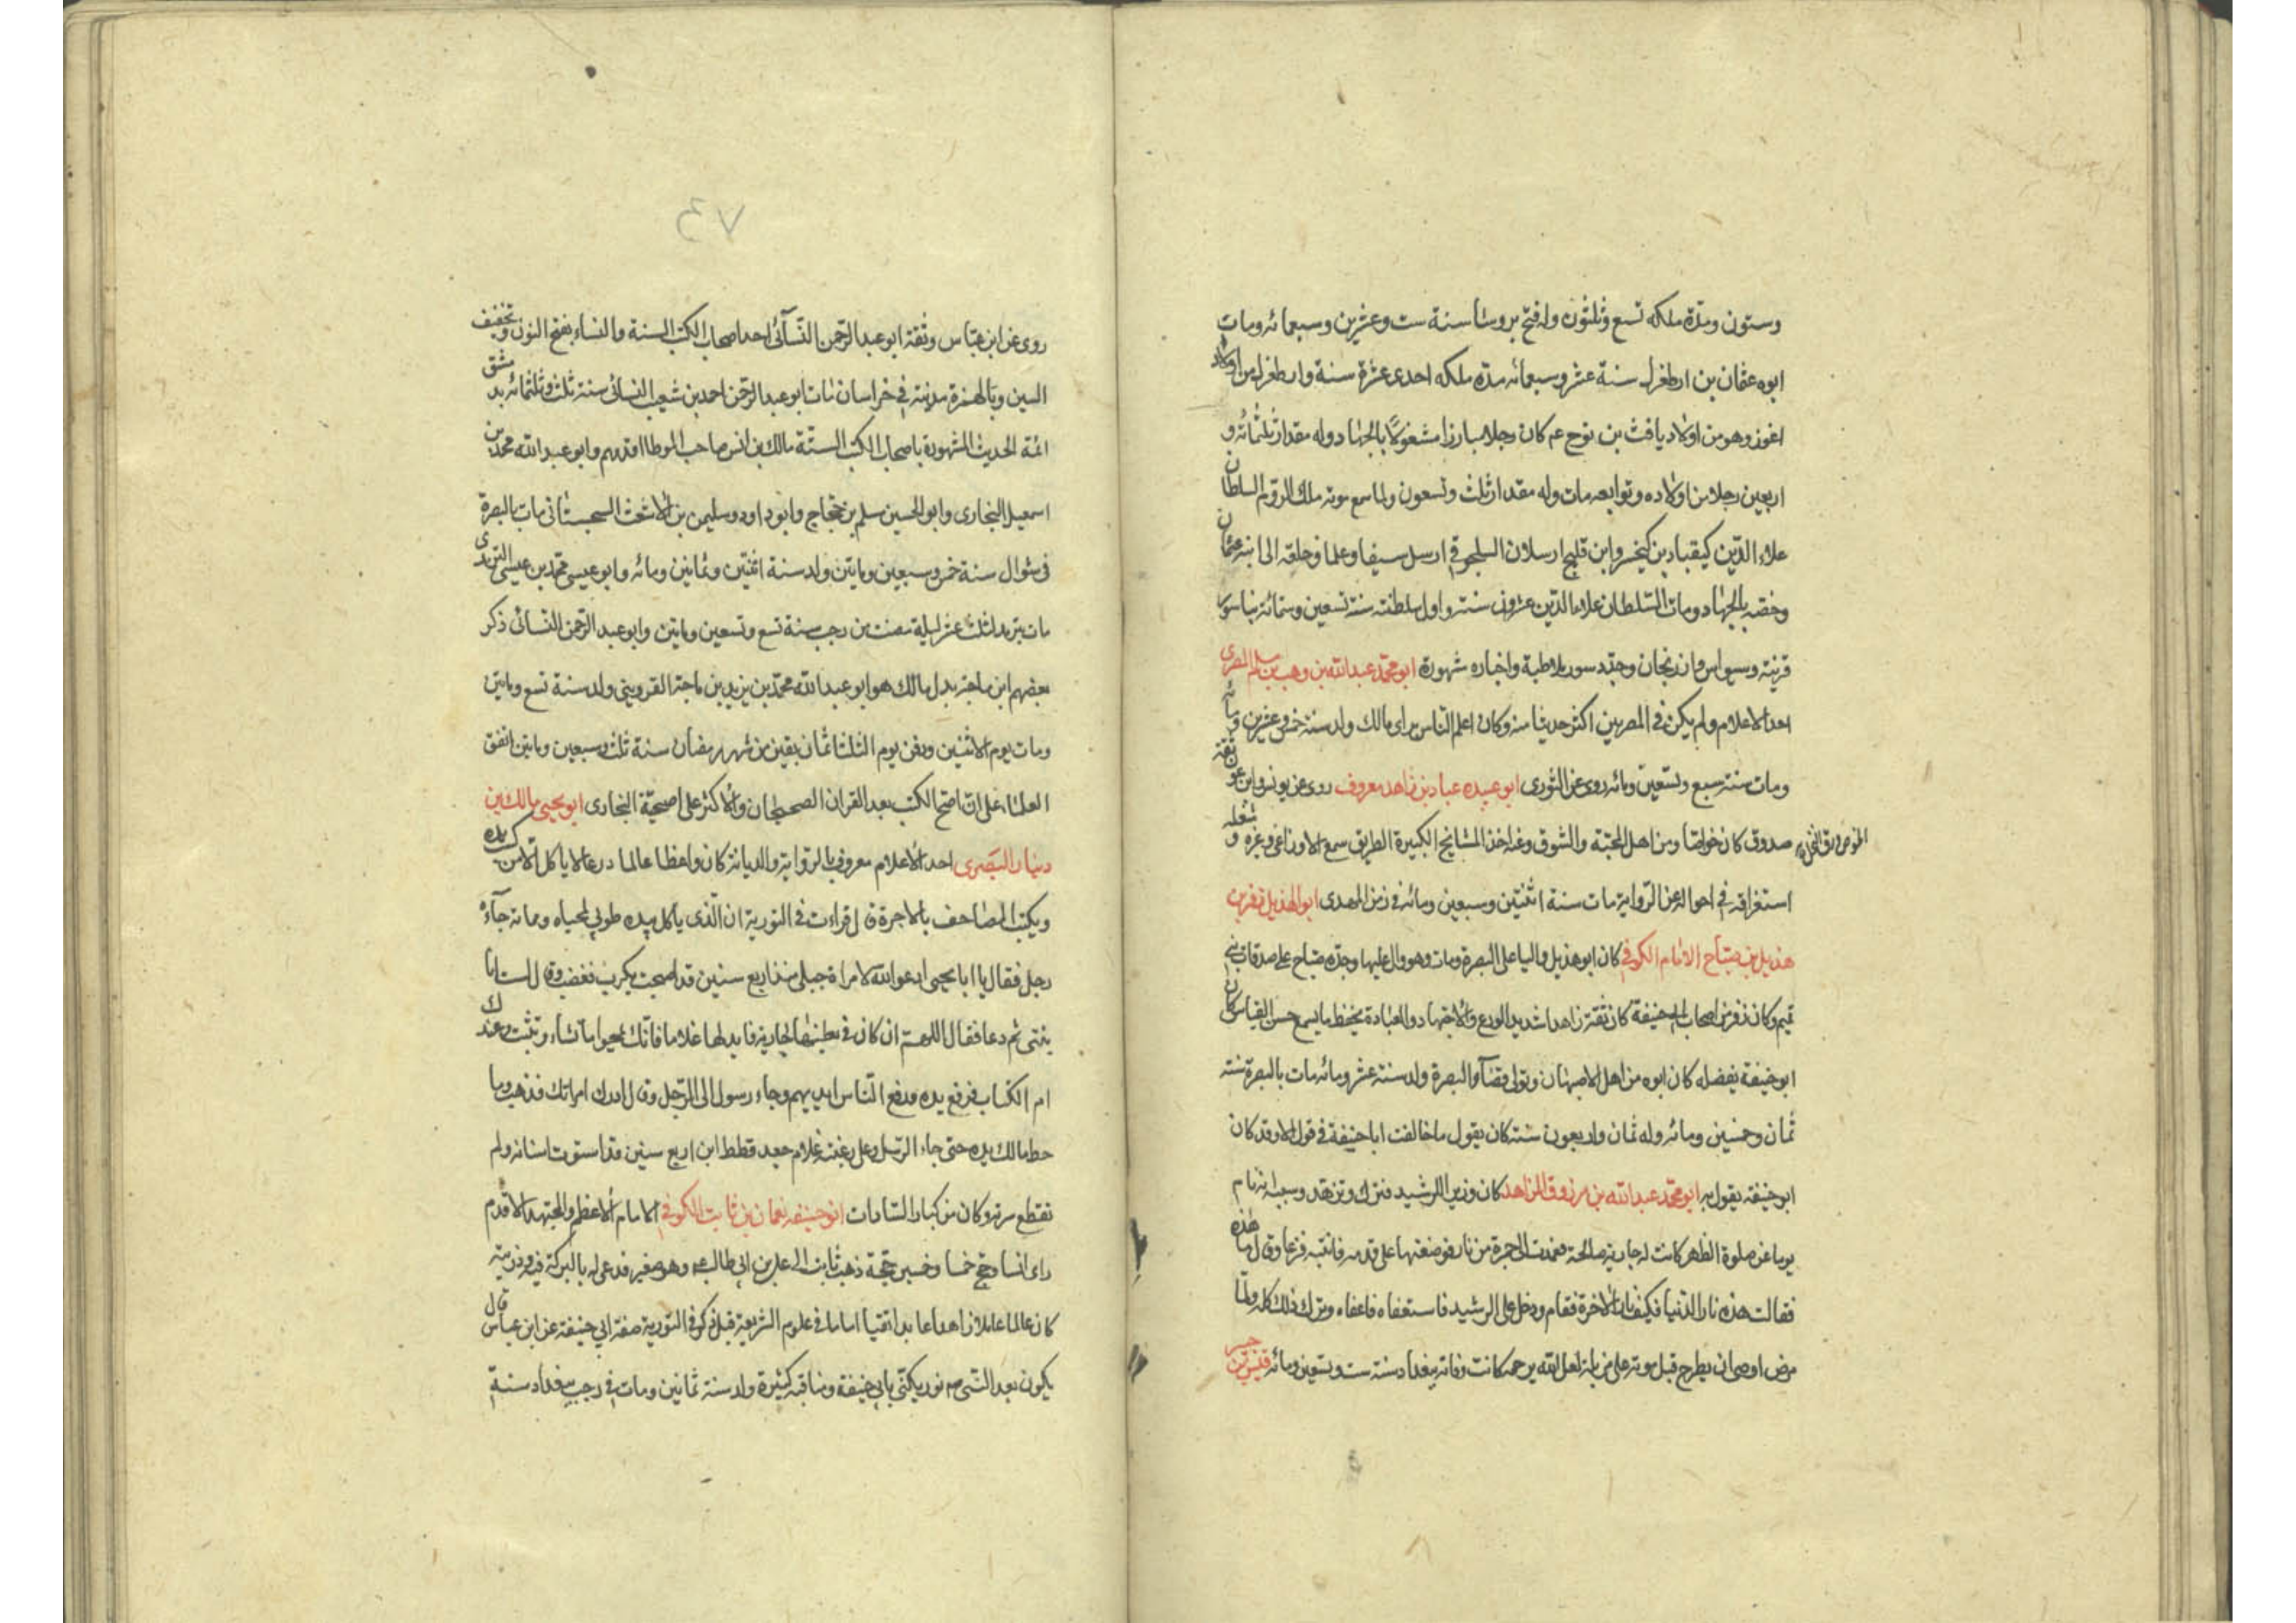 وستون ومدّة ملكه تسع وثلثون وله فتح بروسا سنة ست وعشرين وسبعمائه ومات
ابوه عثمان بن ارطغرل سنة عشر وسبعمائه مدّه ملكه احدى عشرة سنة وارطغرل من اولاد
اغوز وهو من اولاد يافث بن نوح عم كان رجلا مبارزا مشغولاً بالجهاد وله مقدار ثلثمائه و
اربعين رجلا من اولاده وتوابعه مات وله مقدار ثلث وتسعون ولما سمع موته ملك الروم السلطان
علاء الدّين كيقباد بن كيخسرو ابن قليج ارسلان السلجوقي ارسل سيفا وعلما وخلعة الى ابنه عثمان
وخصّه بالجهاد ومات السّلطان علاء الدّين عشرون سنة واول سلطنته سنة تسعين وستمائة بنا سور
قونية وسيواس وارزنجان وجدد سور ملاطية واخباره شهورة ابو محمّد عبد الله بن وهب بن مسلم المصرى
احد الاعلام ولم يكن في المصريين اكثر حديثا منه وكان اعلم الناس براى مالك ولد سنة خمس وعشرين ومائه
ومات سنة سبع وتسعين ومائه روى عن الثورى ابو عبيده عباد بن زاهد معروف روى عن يونس وابن عون ثقة
صدوق كان خواصا ومن اهل المحبّة والشوق وعنه اخذ المشايخ الكبيرة الطريق سمع الاوزاعى وغيره و شغله
الخوص ورق النخل
استغراقه في احواله عن الرّواية مات سنة اثنتين وسبعين ومائه في زمن المهدى ابو الهذيل زفر بن
هذيل بن صبّاح الامام الكوفي كان ابو هذيل واليا على البصرة ومات وهو وال عليها وجدّه صبّاح على صدقات بني
تميم وكان زفر من اصحاب ابي حنيفة كان ثقة زاهدا شديد الورع والاجتهاد والعبادة يحفظ ما يسمع حسن القياس كان
ابو حنيفة يفضله كان ابوه من اهل الاصبهان وتولى قضاء البصرة ولد سنة عشر ومائه مات بالبصرة سنة
ثمان وخمسين ومائه وله ثمان واربعون سنة كان يقول ما خالفت ابا حنيفة في قول الا وقد كان
ابو حنيفه يقول به ابو محمّد عبد الله بن مرزوق الزاهد كان وزير الرشيد فترك وتزهّد وسببه انه نام
يوما عن صلوة الظهر كانت له جارية صالحة فعمدت الى جمرة من نار فوضعتها على قدمه فانتبه فزعا وقال ما هذه
فقالت هذه نار الدّنيا فكيف نار الاخرة فقام ودخل على الرشيد فاستعفاه فاعفاه وترك ذلك كله ولما
مرض اوصى ان يطرح قبل موته على مزبلة لعل الله يرحمه كانت وفاته ببغداد سنة ست وتسعين ومائه
٧٤
روى عن ابن عبّاس وثقة ابو عبد الرّحمن النّسآئى احد اصحاب الكتب الستة والنساء بفتح النون وتخفيف
السين وبالهمزة مدينة في خراسان مات ابو عبد الرّحمن احمد بن شعيب النسائى سنة ثلث وثلثمائه بدمشق
ائمة الحديث المشهورة باصحاب الكتب الستّة مالك بن انس صاحب الموطا اقدمهم وابو عبد الله محمّد بن
اسمعيل البخارى وابو الحسين مسلم بن حجاج وابو داود وسليمن بن الاشعث السجستانى مات بالبصرة
فى شوال سنة خمس وسبعين ومايتين ولد سنة اثنتين وثمانين ومائه وابو عيسى محمّد بن عيسى الترمدى
مات بترمد لثلث عشر ليلة مضت من رجب سنة تسع وتسعين ومايتين وابو عبد الرّحمن النّسائى ذكر
بعضهم ابن ماجة بدل مالك هو ابو عبد الله محمّد بن يزيد بن ماجة القزوينى ولد سنة تسع ومايتين
ومات يوم الاثنين ودفن يوم الثلثا ثمان بقين من شهر رمضان سنة ثلث وسبعين ومايتين اتفق
العلماء على ان اصحّ الكتب بعد القران الصحيحان والاكثر على اصحيّة البخارى ابو يحيى مالك بن
دينار البَصَرى احد الاعلام معروف بالرّواية والديانة كان واعظا عالما درعا لا ياكل الا من كد يده
ويكتب المصاحف بالاجرة قال قراءت في التورية ان الذى ياكل بيده طوبى لمحياه ومماته جآءه
رجل فقال يا ابا يحيى ادعو الله لامراة حبلى منذ اربع سنين قد اصبحت بكرب فغضب وقال لست انا
بنتى ثم دعا فقال اللهم ان كان في بطنها الجارية فابدلها غلاما فانّك تمحوا ما تشاء وتثبت وعندك
ام الكتاب فرفع يده ورفع النّاس ايديهم وجاء رسول الى الرّجل وقال ادرك امراتك فذهب وما
حط مالك يده حتى جاء الرّجل وعلى رقبته غلام جعد قطط ابن اربع سنين قد استوت اسنانه ولم
تقطع سرته وكان من كبار السّادات ابو حنيفه نعمان بن ثابت الكوفي الامام الاعظم والمجتهد الاقدم
راى انسا وحجّ خمسا وخمسين حجّة ذهب ثابت الى على بن ابى طالب وهو صغير فدعى له بالبركة فيه وذريته
كان عالما عاملا زاهدا عابدا تقيا اماما في علوم الشريعة قيل ذكر في التورية صفة ابي حنيفة عن ابن عباس قال
يكون بعد النّبى صم نور يكنّى بابي حنيفة ومناقبه كثيرة ولد سنة ثمانين ومات في رجب ببغداد سنة